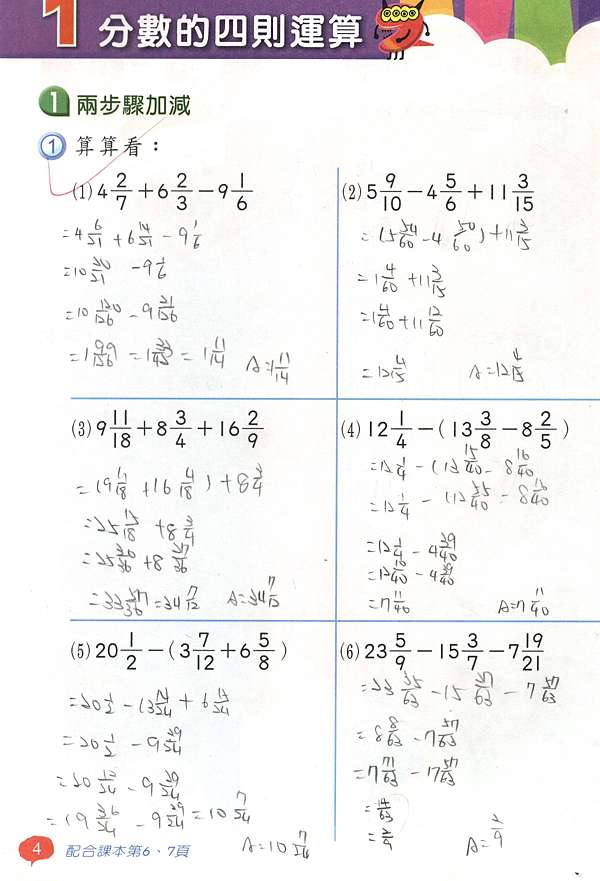 1 分數的四則運算
1 兩步驟加減
① 算算看：
(1) 4 2/7 + 6 2/3 − 9 1/6
= 4 6/21 + 6 14/21 − 9 1/6
= 10 20/21 − 9 1/6
= 10 120/126 − 9 21/126
= 1 99/126 = 1 33/42 = 1 11/14 A=1 11/14
(2) 5 9/10 − 4 5/6 + 11 3/15
= (5 54/60 − 4 50/60) + 11 3/15
= 1 4/60 + 11 3/15
= 1 4/60 + 11 12/60
= 12 4/15 A=12 4/15
(3) 9 11/18 + 8 3/4 + 16 2/9
= (9 11/18 + 16 4/18) + 8 3/4
= 25 15/18 + 8 3/4
= 25 30/36 + 8 27/36
= 33 57/36 = 34 7/12 A=34 7/12
(4) 12 1/4 − (13 3/8 − 8 2/5)
= 12 1/4 − (13 15/40 − 8 16/40
= 12 1/4 − (12 55/40 − 8 16/40
= 12 1/4 − 4 39/40
= 12 10/40 − 4 39/40
= 7 11/40 A=7 11/40
(5) 20 1/2 − (3 7/12 + 6 5/8)
= 20 1/2 − (3 14/24 + 6 15/24
= 20 1/2 − 9 29/24
= 20 12/24 − 9 29/24
= 19 36/24 − 9 29/24 = 10 7/24
A=10 7/24
(6) 23 5/9 − 15 3/7 − 7 19/21
= 23 35/63 − 15 27/63 − 7 57/63
= 8 8/63 − 7 57/63
= 7 71/63 − 7 57/63
= 14/63
= 2/9 A= 2/9
4 配合課本第6、7頁